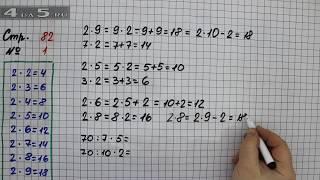 4на5.ru
Стр. 82
№ 1
2·2=4
2·3=6
2·4=8
2·5=10
2·6=12
2·7=14
2·8=16
2·9=18
2·9=9·2=9+9=18 / 2·10-2=18
7·2=7+7=14
2·5=5·2=5+5=10
3·2=3+3=6
2·6=2·5+2=10+2=12
2·8=8·2=16 2·8=2·9-2=
70:7·5=
70:10·2=